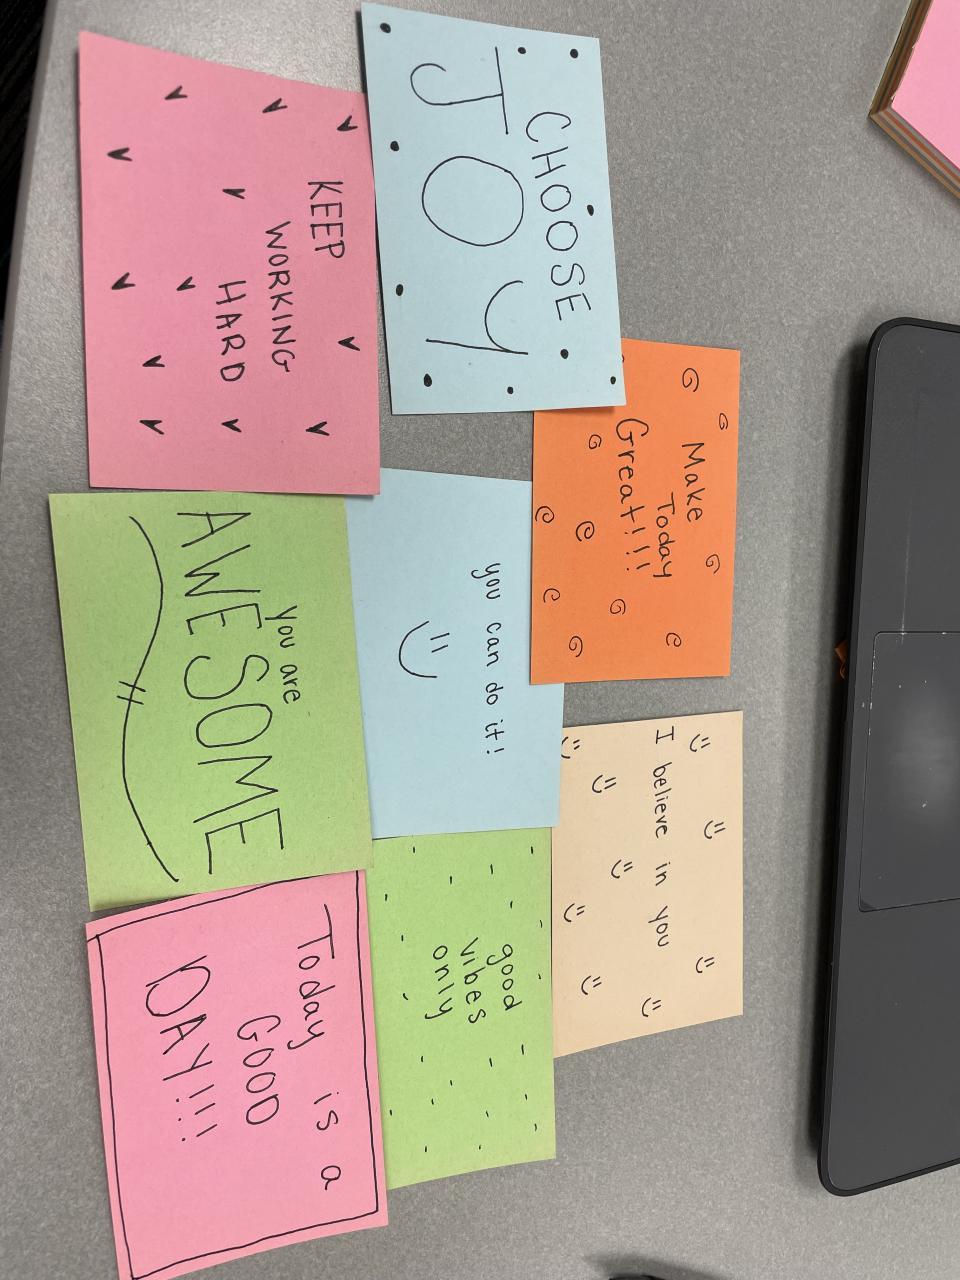 I believe in you
Make
Today
Great!!!
CHOOSE
JOY
good
vibes
only
you can do it!
KEEP
WORKING
HARD
Today is a
GOOD
DAY!!!
you are
AWESOME